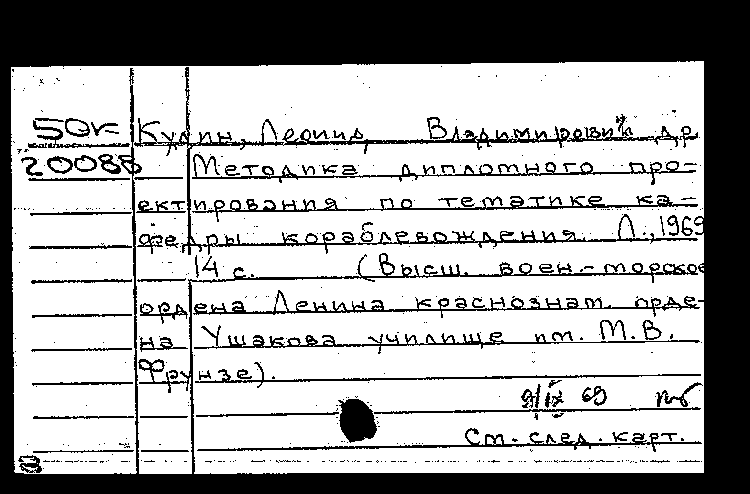 50к Кулин, Леонид Владимирович и др.
20088 Методика диплотного про-
ектирования по тематике ка-
федры кораблевождения. Л., 1969
14 с. (Высш. воен.-морское
ордена Ленина краснознам. орде-
на Ушакова училище им. М.В.
Фрунзе).
9/IX 69
См. след. карт.